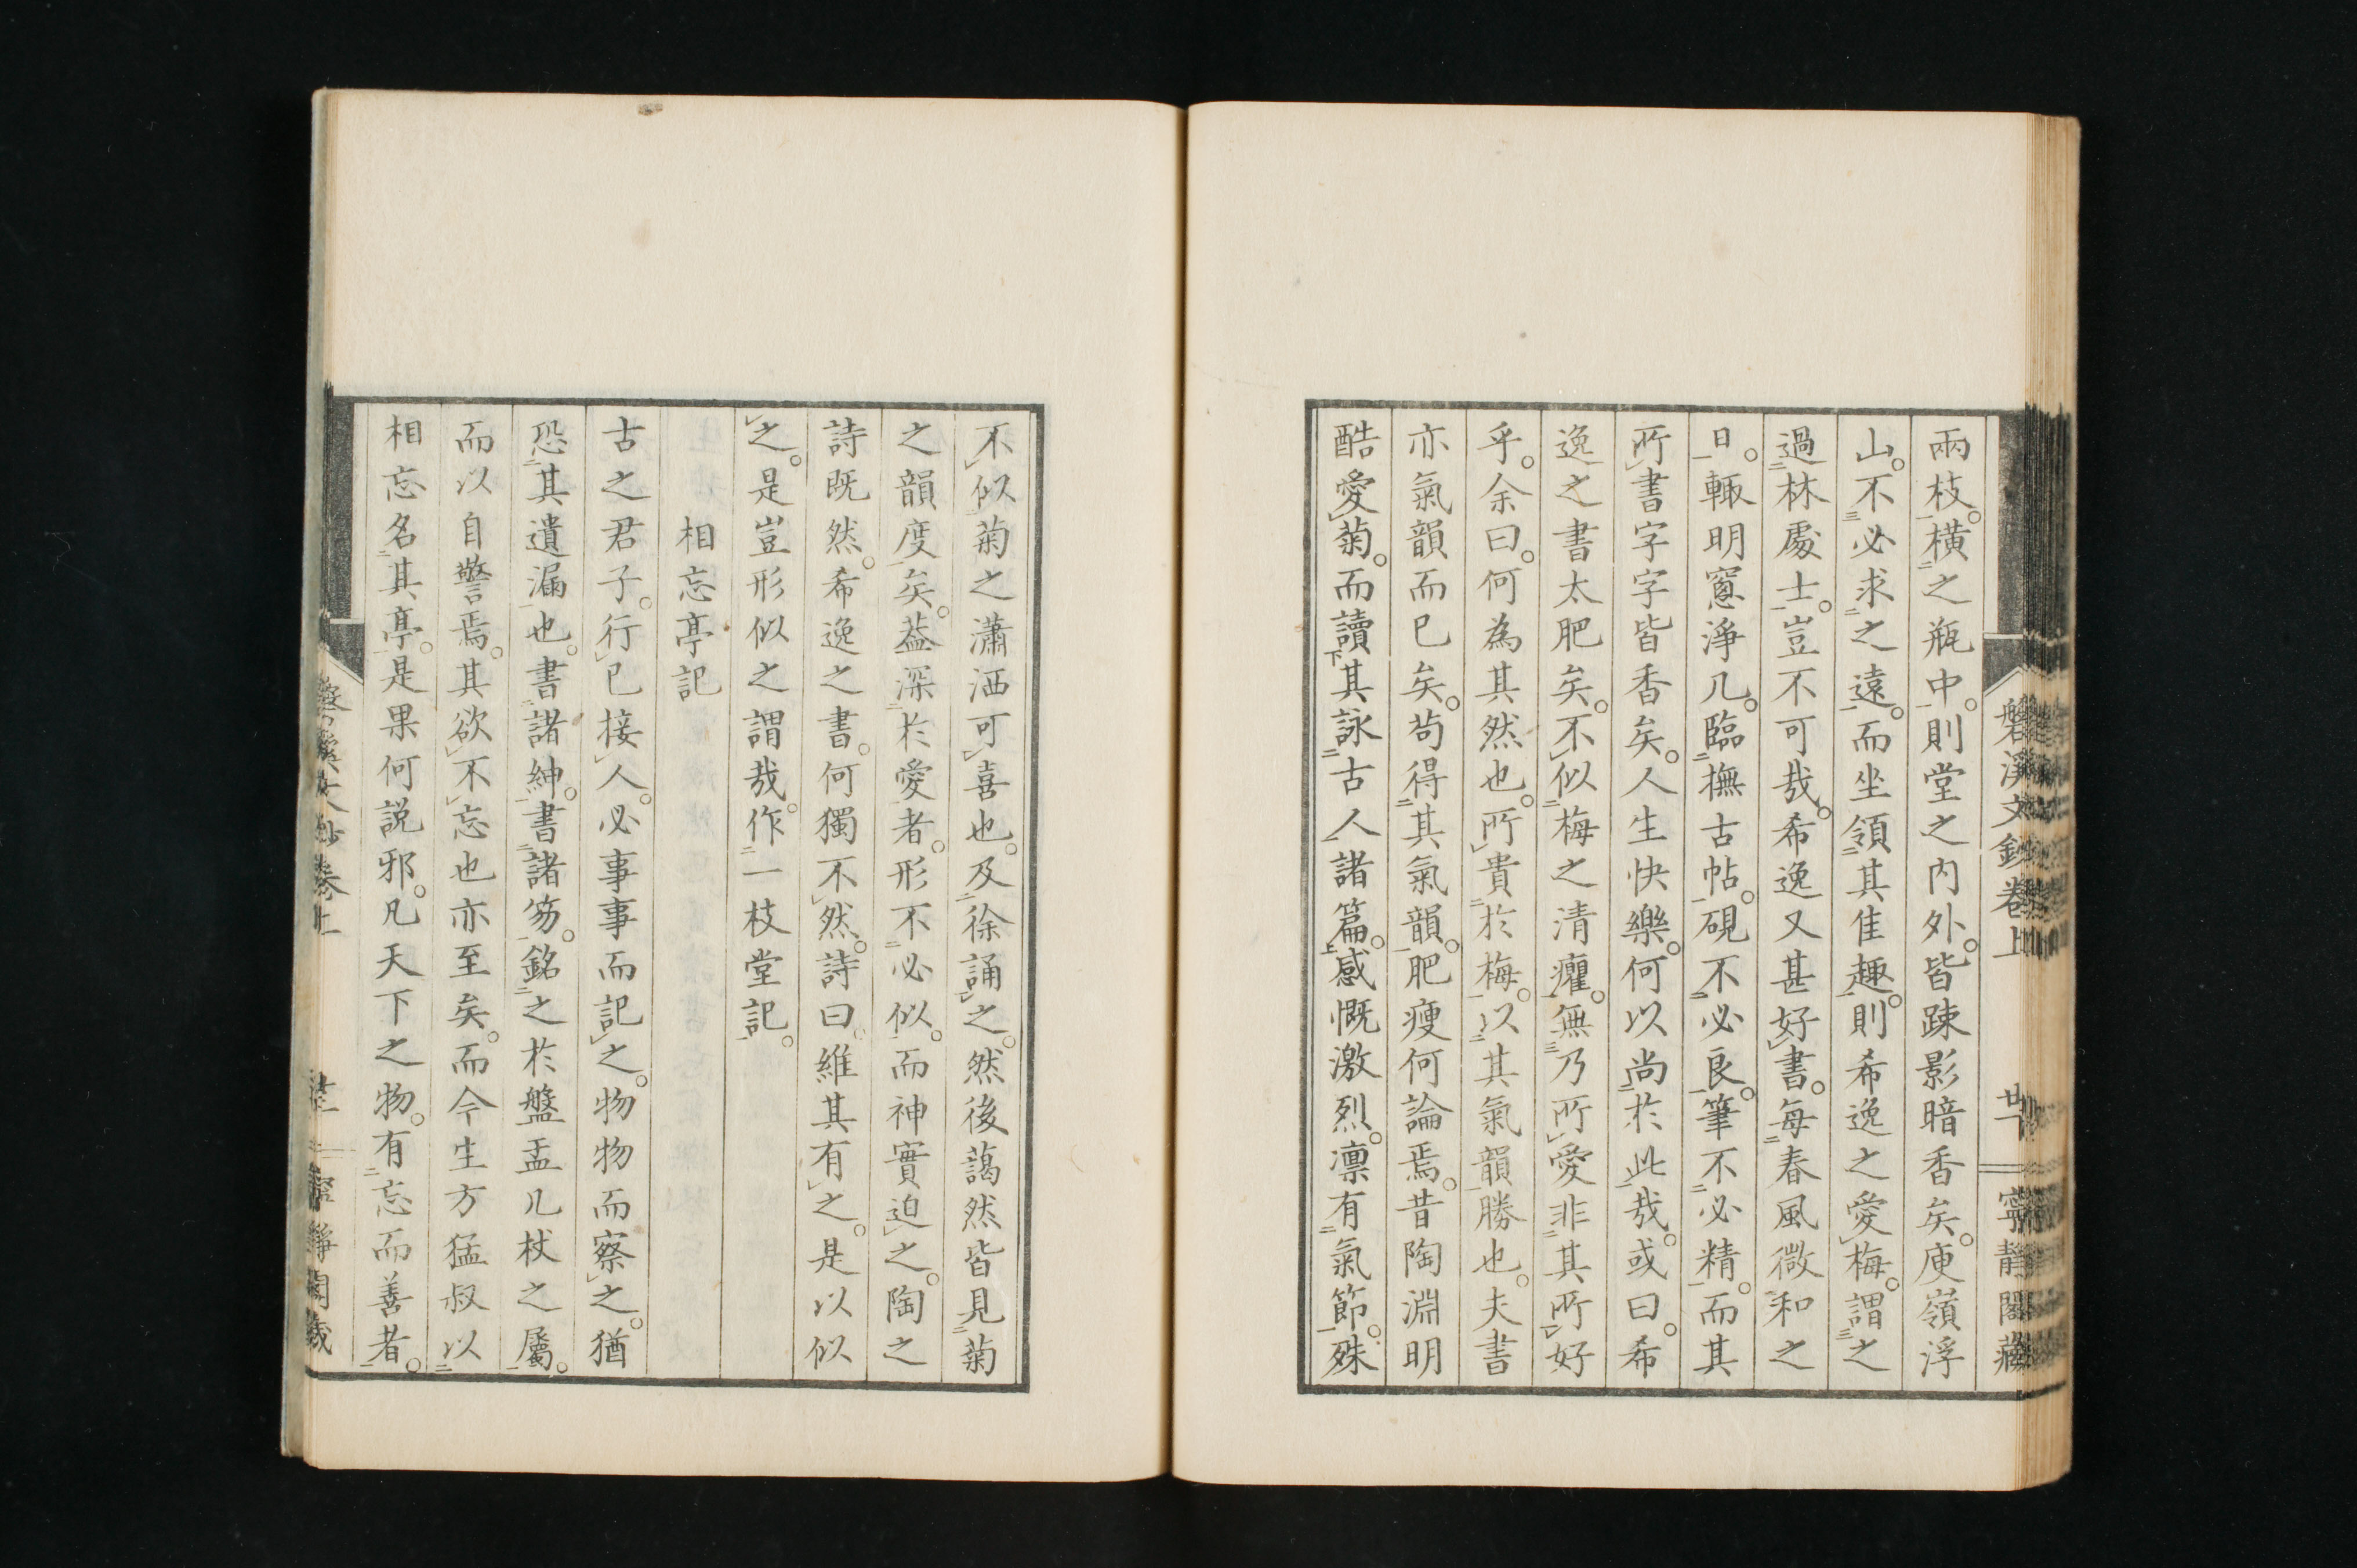 磐溪文鈔卷上
寧靜閣藏
兩枝。橫之瓶中。則堂之內外。皆踈影暗香矣。庾嶺浮
山。不必求之遠。而坐領其佳趣。則希逸之愛梅。謂之
過林處士。豈不可哉。希逸又甚好書。每春風微和之
日。輙明窻淨几。臨撫古帖。硯不必良。筆不必精。而其
所書字字皆香矣。人生快樂。何以尚於此哉。或曰。希
逸之書太肥矣。不似梅之清癯。無乃所愛非其所好
乎。余曰。何為其然也。所貴於梅。以其氣韻勝也。夫書
亦氣韻而已矣。苟得其氣韻。肥瘦何論焉。昔陶淵明
酷愛菊。而讀其詠古人諸篇。感慨激烈。凛有氣節。殊
不似菊之瀟洒可喜也。及徐誦之。然後藹然皆見菊
之韻度矣。葢深於愛者。形不必似。而神實迫之。陶之
詩既然。希逸之書。何獨不然。詩曰。維其有之。是以似
之。是豈形似之謂哉。作一枝堂記。
相忘亭記
古之君子。行已接人。必事事而記之。物物而察之。猶
恐其遺漏也。書諸紳。書諸笏。銘之於盤盂几杖之屬。
而以自警焉。其欲不忘也亦至矣。而今生方猛叔以
相忘名其亭。是果何説邪。凡天下之物。有忘而善者。
磐溪文鈔卷上
寧靜閣藏